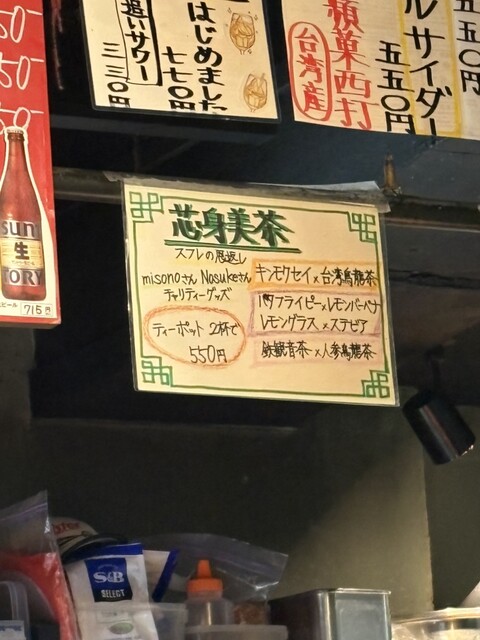 追いサワー
三三〇円
はじめました
七七〇円
頻菓西打
台湾産
ルサイダー
五五〇円
五五〇円
sun
生
TORY
ビール 715円
芯身美茶
スフレの恩返し
misonoさん Nosukeさん
チャリティーグッズ
ティーポット 2杯で
550円
キンモクセイ×台湾烏龍茶
バタフライピー×レモンバーベナ
レモングラス×ステビア
鉄観音茶×人参烏龍茶
S&B
SELECT